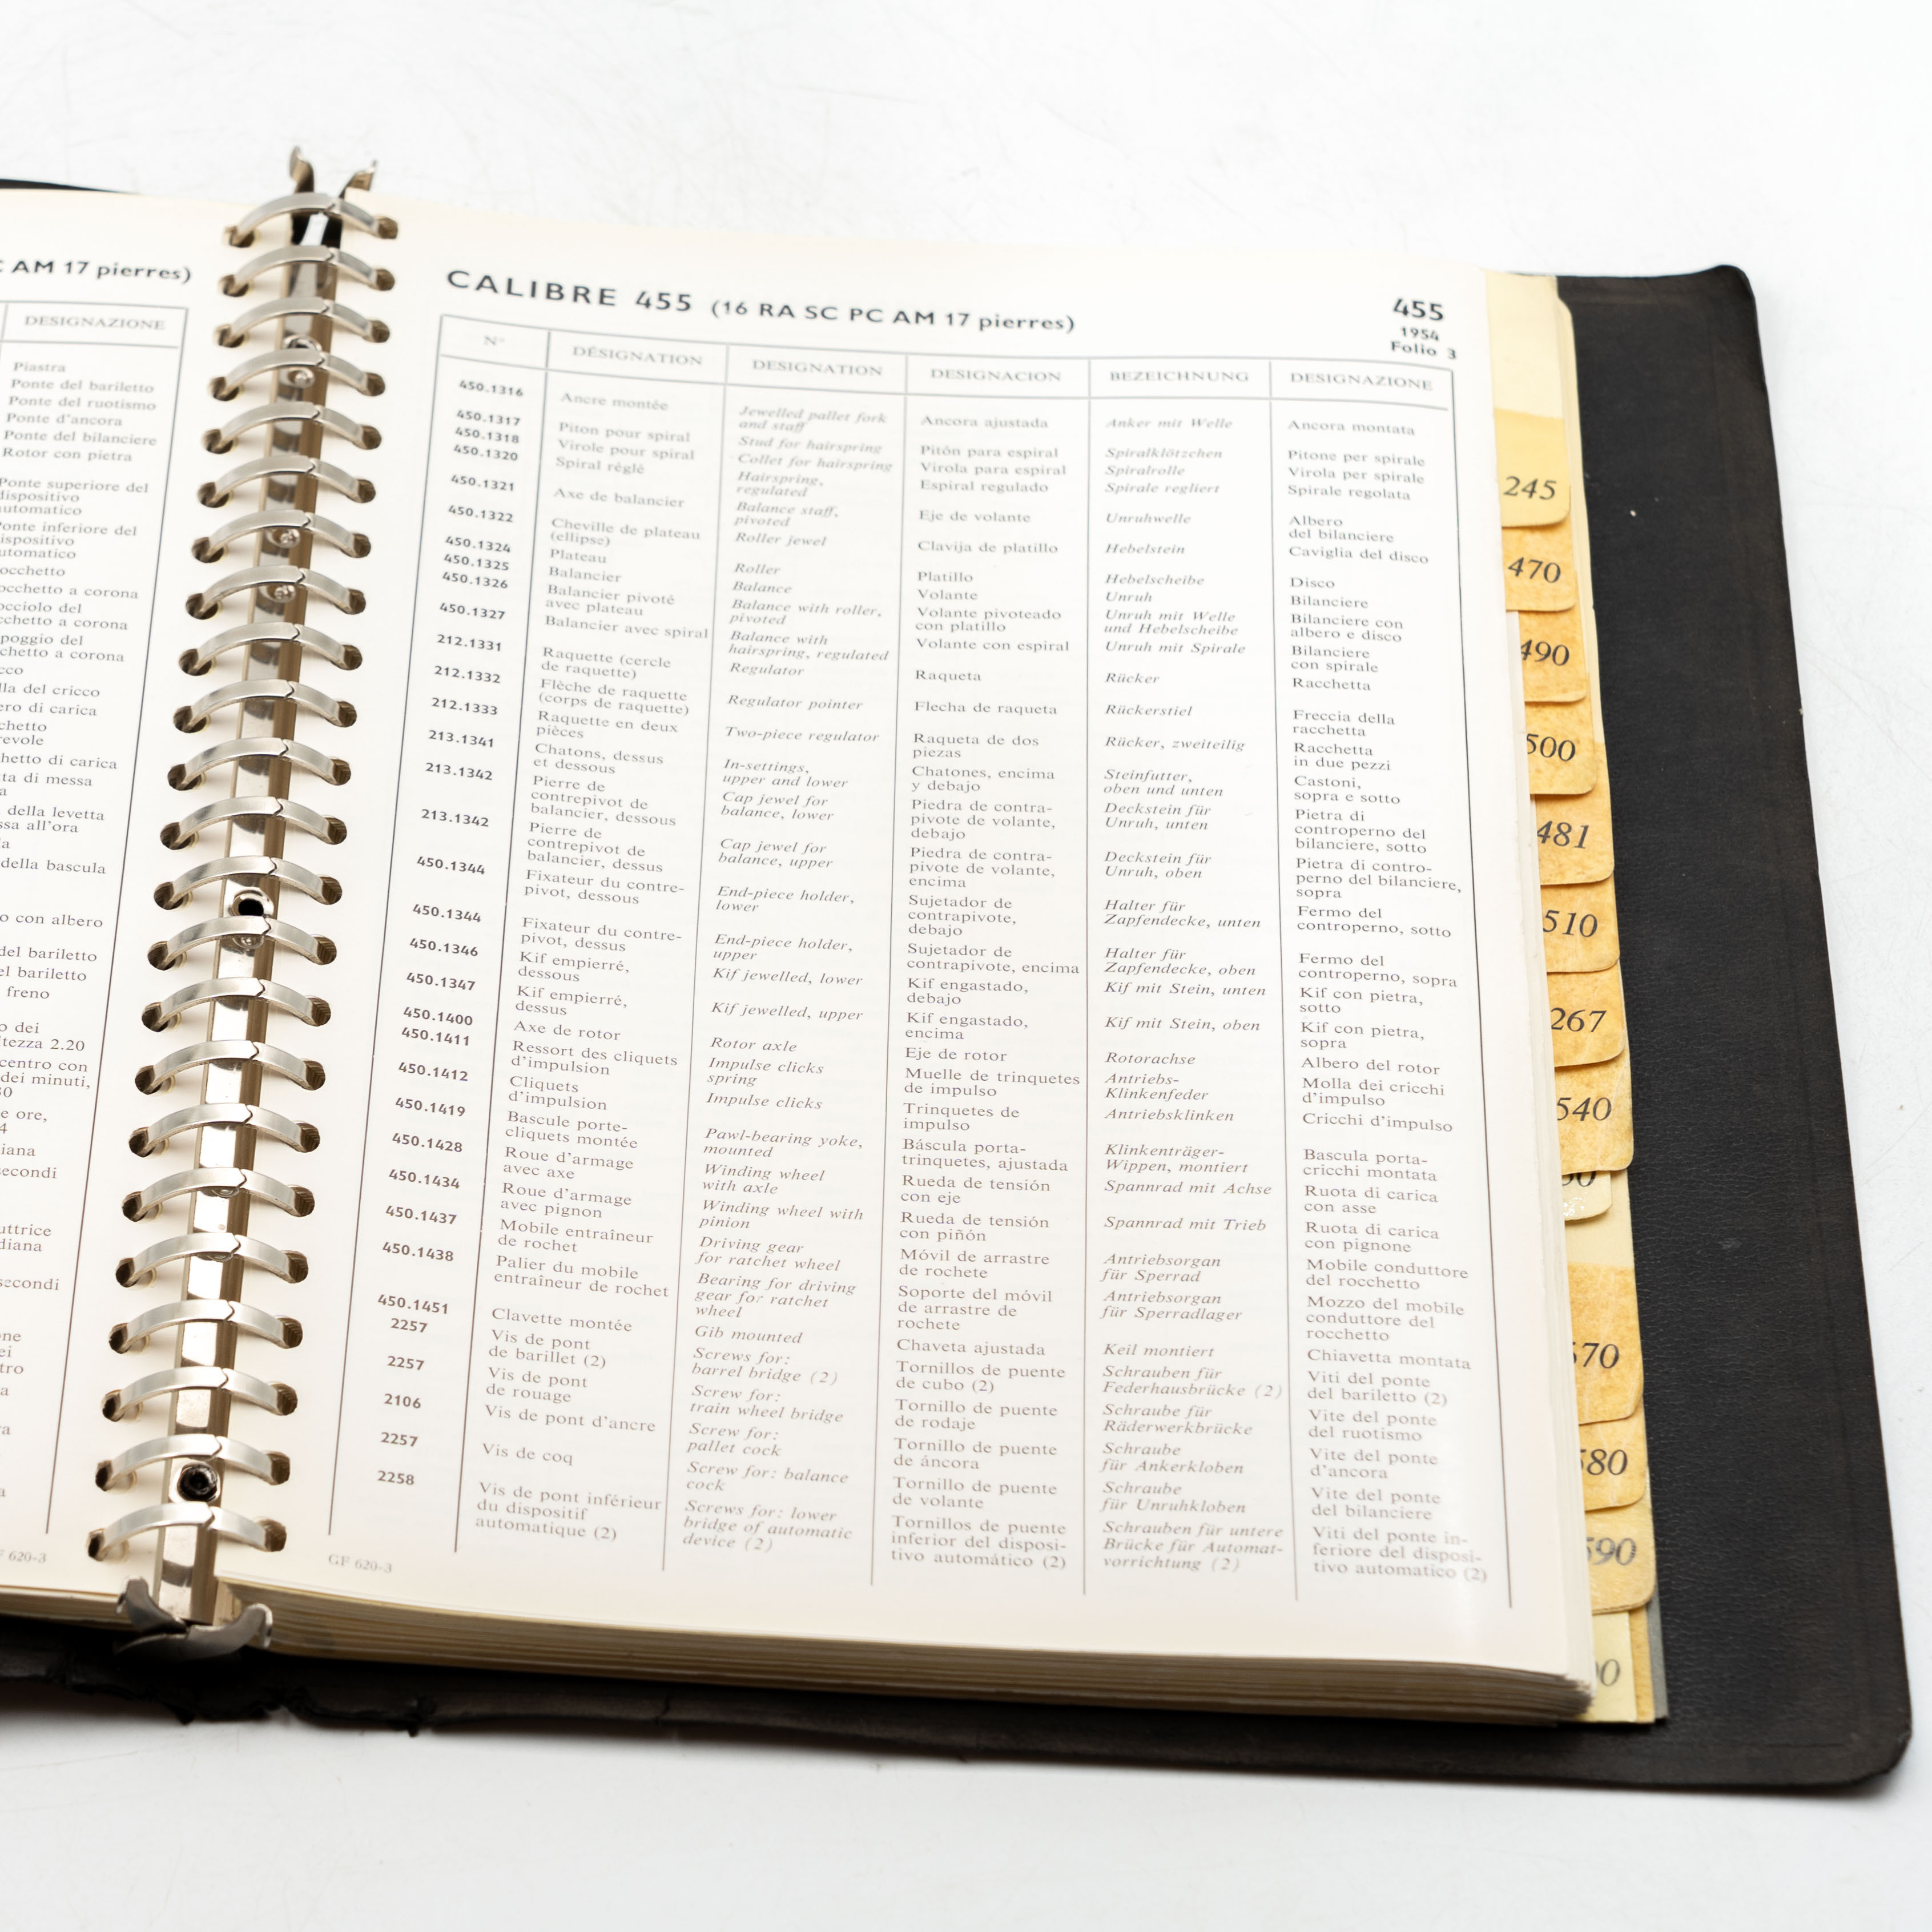 AM 17 pierres)
DESIGNAZIONE
Piastra
Ponte del bariletto
Ponte del ruotismo
Ponte d'ancora
Ponte del bilanciere
Rotor con pietra
Ponte superiore del
dispositivo
automatico
Ponte inferiore del
del cricco
di carica
di carica
di messa
della levetta
all'ora
della bascula
con albero
del bariletto
bariletto
freno
dei
2.20
centro con
dei minuti,
ore,
secondi
secondi
GF 620-3
CALIBRE 455 (16 RA SC PC AM 17 pierres)
455
1954
Folio 3
N° DÉSIGNATION DESIGNATION DESIGNACION BEZEICHNUNG DESIGNAZIONE
450.1316 Ancre montée Jewelled pallet fork Ancora ajustada Anker mit Welle Ancora montata
and staff
450.1317 Piton pour spiral Stud for hairspring Pitón para espiral Spiralklötzchen Pitone per spirale
450.1318 Virole pour spiral Collet for hairspring Virola para espiral Spiralrolle Virola per spirale
450.1320 Spiral réglé Hairspring, Espiral regulado Spirale regliert Spirale regolata
regulated
450.1321 Axe de balancier Balance staff, Eje de volante Unruhwelle Albero
pivoted del bilanciere
450.1322 Cheville de plateau Roller jewel Clavija de platillo Hebelstein Caviglia del disco
(ellipse)
450.1324 Plateau Roller Platillo Hebelscheibe Disco
450.1325 Balancier Balance Volante Unruh Bilanciere
450.1326 Balancier pivoté Balance with roller, Volante pivoteado Unruh mit Welle Bilanciere con
avec plateau pivoted con platillo und Hebelscheibe albero e disco
450.1327 Balancier avec spiral Balance with Volante con espiral Unruh mit Spirale Bilanciere
hairspring, regulated con spirale
212.1331 Raquette (cercle Regulator Raqueta Rücker Racchetta
de raquette)
212.1332 Flèche de raquette Regulator pointer Flecha de raqueta Rückerstiel Freccia della
(corps de raquette) racchetta
212.1333 Raquette en deux Two-piece regulator Raqueta de dos Rücker, zweiteilig Racchetta
pièces piezas in due pezzi
213.1341 Chatons, dessus In-settings, Chatones, encima Steinfutter, Castoni,
et dessous upper and lower y debajo oben und unten sopra e sotto
213.1342 Pierre de Cap jewel for Piedra de contra- Deckstein für Pietra di
contrepivot de balance, lower pivote de volante, Unruh, unten controperno del
balancier, dessous debajo bilanciere, sotto
213.1342 Pierre de Cap jewel for Piedra de contra- Deckstein für Pietra di contro-
contrepivot de balance, upper pivote de volante, Unruh, oben perno del bilanciere,
balancier, dessus encima sopra
450.1344 Fixateur du contre- End-piece holder, Sujetador de Halter für Fermo del
pivot, dessous lower contrapivote, Zapfendecke, unten controperno, sotto
debajo
450.1344 Fixateur du contre- End-piece holder, Sujetador de Halter für Fermo del
pivot, dessus upper contrapivote, encima Zapfendecke, oben controperno, sopra
450.1346 Kif empierré, Kif jewelled, lower Kif engastado, Kif mit Stein, unten Kif con pietra,
dessous debajo sotto
450.1347 Kif empierré, Kif jewelled, upper Kif engastado, Kif mit Stein, oben Kif con pietra,
dessus encima sopra
450.1400 Axe de rotor Rotor axle Eje de rotor Rotorachse Albero del rotor
450.1411 Ressort des cliquets Impulse clicks Muelle de trinquetes Antriebs- Molla dei cricchi
d'impulsion spring de impulso Klinkenfeder d'impulso
450.1412 Cliquets Impulse clicks Trinquetes de Antriebsklinken Cricchi d'impulso
d'impulsion impulso
450.1419 Bascule porte- Pawl-bearing yoke, Báscula porta- Klinkenträger- Bascula porta-
cliquets montée mounted trinquetes, ajustada Wippen, montiert cricchi montata
450.1428 Roue d'armage Winding wheel Rueda de tensión Spannrad mit Achse Ruota di carica
avec axe with axle con eje con asse
450.1434 Roue d'armage Winding wheel with Rueda de tensión Spannrad mit Trieb Ruota di carica
avec pignon pinion con piñón con pignone
450.1437 Mobile entraîneur Driving gear Móvil de arrastre Antriebsorgan Mobile conduttore
de rochet for ratchet wheel de rochete für Sperrad del rocchetto
450.1438 Palier du mobile Bearing for driving Soporte del móvil Antriebsorgan Mozzo del mobile
entraîneur de rochet gear for ratchet de arrastre de für Sperradlager conduttore del
wheel rochete rocchetto
450.1451 Clavette montée Gib mounted Chaveta ajustada Keil montiert Chiavetta montata
2257 Vis de pont Screws for: Tornillos de puente Schrauben für Viti del ponte
de barillet (2) barrel bridge (2) de cubo (2) Federhausbrücke (2) del bariletto (2)
2257 Vis de pont Screw for: Tornillo de puente Schraube für Vite del ponte
de rouage train wheel bridge de rodaje Räderwerkbrücke del ruotismo
2106 Vis de pont d'ancre Screw for: Tornillo de puente Schraube Vite del ponte
pallet cock de áncora für Ankerkloben d'ancora
2257 Vis de coq Screw for: balance Tornillo de puente Schraube Vite del ponte
cock de volante für Unruhkloben del bilanciere
2258 Vis de pont inférieur Screws for: lower Tornillos de puente Schrauben für untere Viti del ponte in-
du dispositif bridge of automatic inferior del disposi- Brücke für Automat- feriore del disposi-
automatique (2) device (2) tivo automático (2) vorrichtung (2) tivo automatico (2)
GF 620-3
245
470
490
500
481
510
267
540
570
580
590